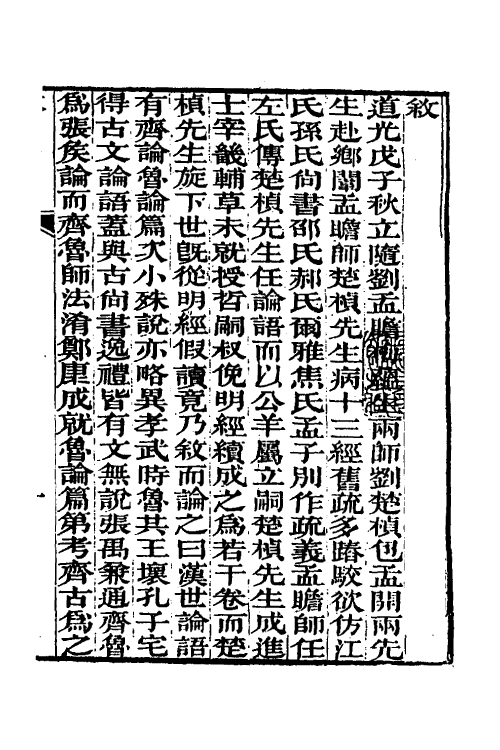 敘
道光戊子秋立隨劉孟瞻生兩師劉楚楨包孟開兩先
生赴鄉闈孟瞻師楚楨先生病十三經舊疏多踳駮欲仿江
氏孫氏尙書邵氏郝氏爾雅焦氏孟子別作疏義孟瞻師任
左氏傳楚楨先生任論語而以公羊屬立嗣楚楨先生成進
士宰畿輔草未就授哲嗣叔俛明經續成之爲若干卷而楚
楨先生旋下世旣從明經假讀竟乃敘而論之曰漢世論語
有齊論魯論篇次小殊說亦略異孝武時魯共王壞孔子宅
得古文論語蓋與古尙書逸禮皆有文無說張禹兼通齊魯
爲張矦論而齊魯師法淆鄭康成就魯論篇第考齊古爲之